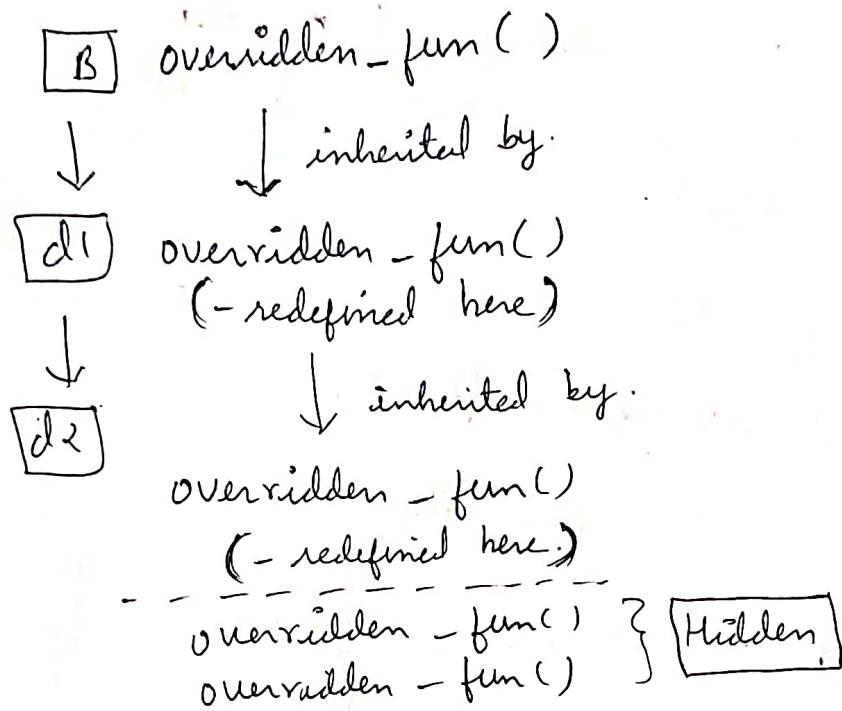 B overridden_fun()
inherited by.
d1 overridden_fun()
(- redefined here)
inherited by.
d2
overridden_fun()
(- redefined here.)
overridden_fun()
overradden_fun() Hidden.